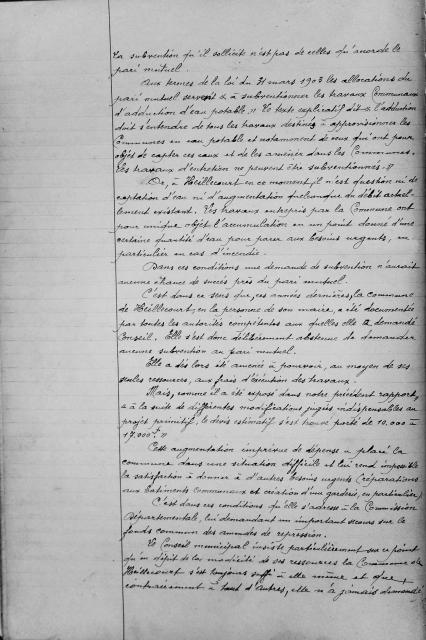 la subvention qu'il sollicite n'est pas de celles qu'accorde le
pari mutuel.
Aux termes de la loi du 31 mars 1903 les allocations du
pari mutuel servent "à subventionner les travaux communaux
d'adduction d'eau potable." Le texte explicatif dit "l'adduction
doit s'entendre de tous les travaux destinés à approvisionner les
Communes en eau potable et notamment de ceux qui ont pour
objet de capter ces eaux et de les amener dans les Communes.
Les travaux d'entretien ne peuvent être subventionnés."
Or, à Heillecourt en ce moment, il n'est question ni de
captation d'eau ni d'augmentation quelconque du débit actuel-
lement existant. Les travaux entrepris par la Commune ont
pour unique objet l'accumulation en un point donné d'une
certaine quantité d'eau pour parer aux besoins urgents, en
particulier en cas d'incendie.
Dans ces conditions une demande de subvention n'aurait
aucune chance de succès près du pari mutuel.
C'est dans ce sens que, ces années dernières, la commune
de Heillecourt, en la personne de son maire, a été documentée
par toutes les autorités compétentes aux quelles elle a demandé
Conseil. Elle s'est donc délibérément abstenue de demander
aucune subvention au pari mutuel.
Elle a dès lors été amenée à pourvoir, au moyen de ses
seules ressources, aux frais d'exécution des travaux.
Mais, comme il a été exposé dans notre précédent rapport,
"à la suite de différentes modifications jugées indispensables au
projet primitif, le devis estimatif s'est trouvé porté de 10.000 à
17.000f."
Cette augmentation imprévue de dépense a placé la
commune dans une situation difficile et lui rend impossible
la satisfaction à donner à d'autres besoins urgents (réparations
aux bâtiments communaux et création d'une garderie, en particulier)
C'est dans ces conditions qu'elle s'adresse à la Commission
Départementale, lui demandant un important secours sur le
fonds commun des amendes de répression.
Le Conseil municipal insiste particulièrement sur ce point
qu'en dépit de la modicité de ses ressources la Commune de
Heillecourt s'est toujours suffi à elle même et que,
contrairement à tant d'autres, elle n'a jamais demandé